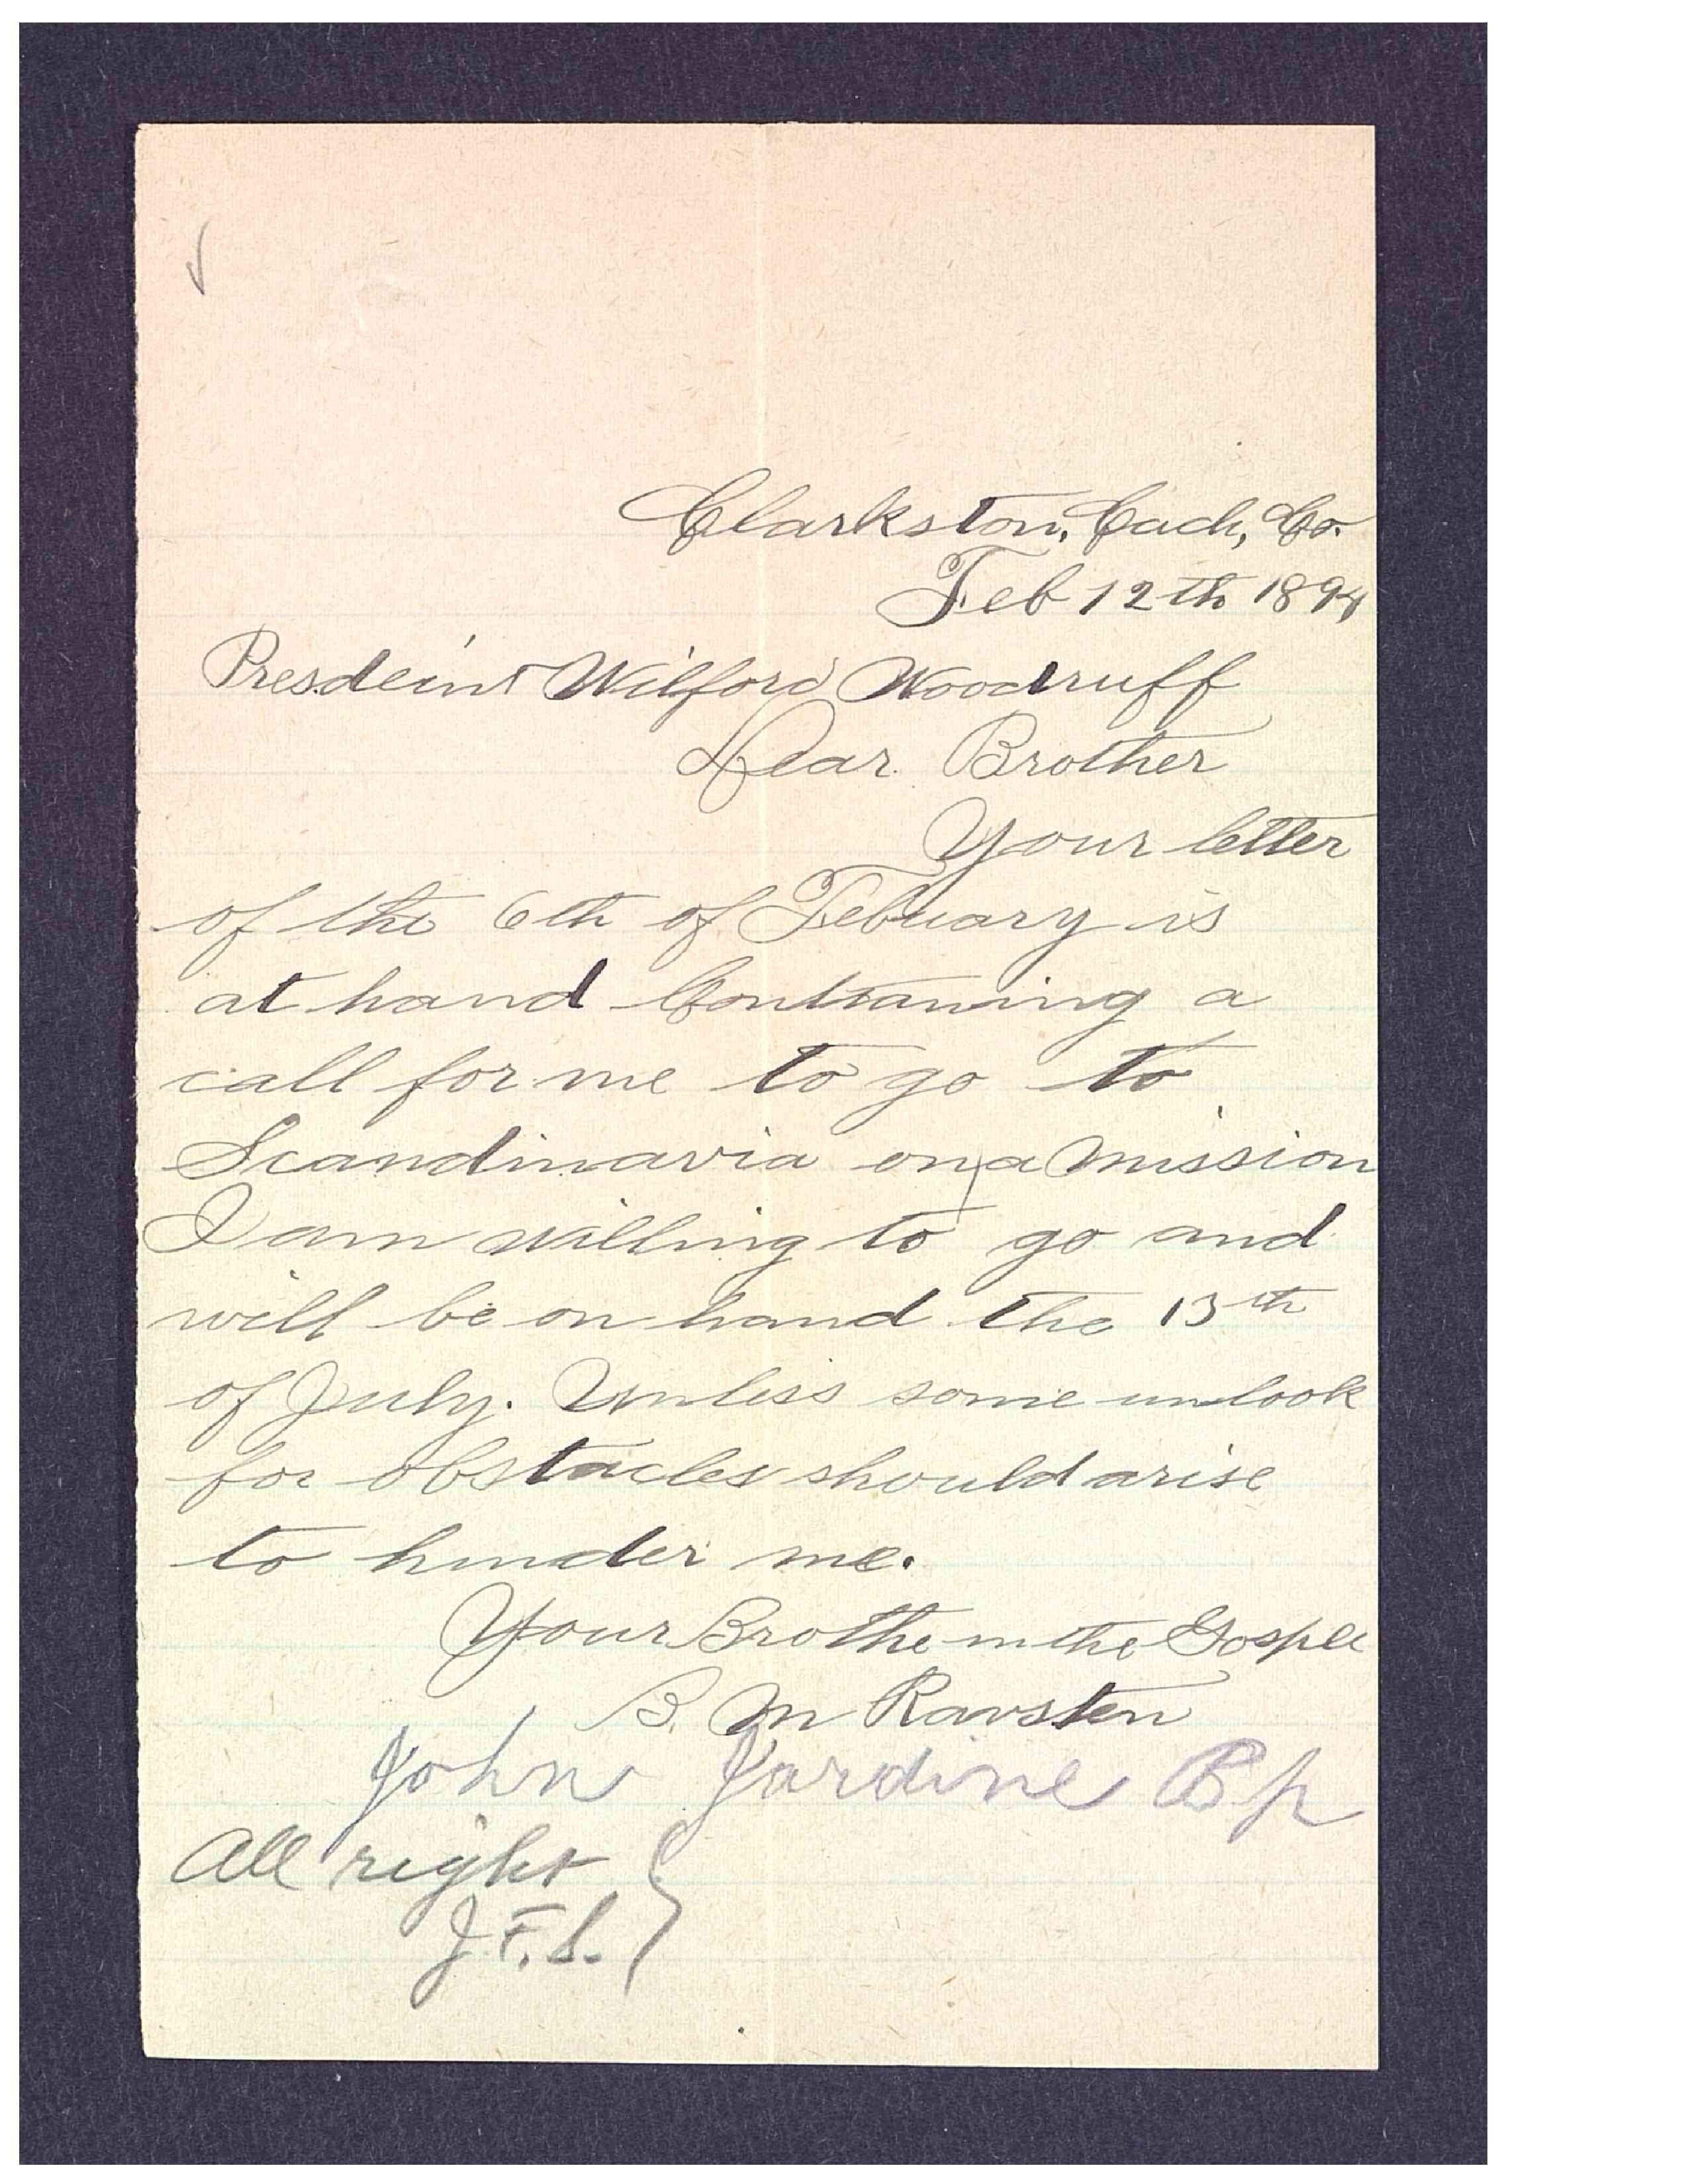 Clarkston, Cach, Co.
Feb 12th 1894
Presdeint Wilford Woodruff
Dear Brother
Your letter
of the 6th of Febuary is
at hand Contianing a
call for me to go to
Scandinavia on a mission
I am willing to go and
will be on hand the 13th
of July. Unless some unlook
for obstacles should arise
to hinder me.
Your Brothe in the Gospel
B. M Ravsten
John Jardine Bp
All right
J. F. S.